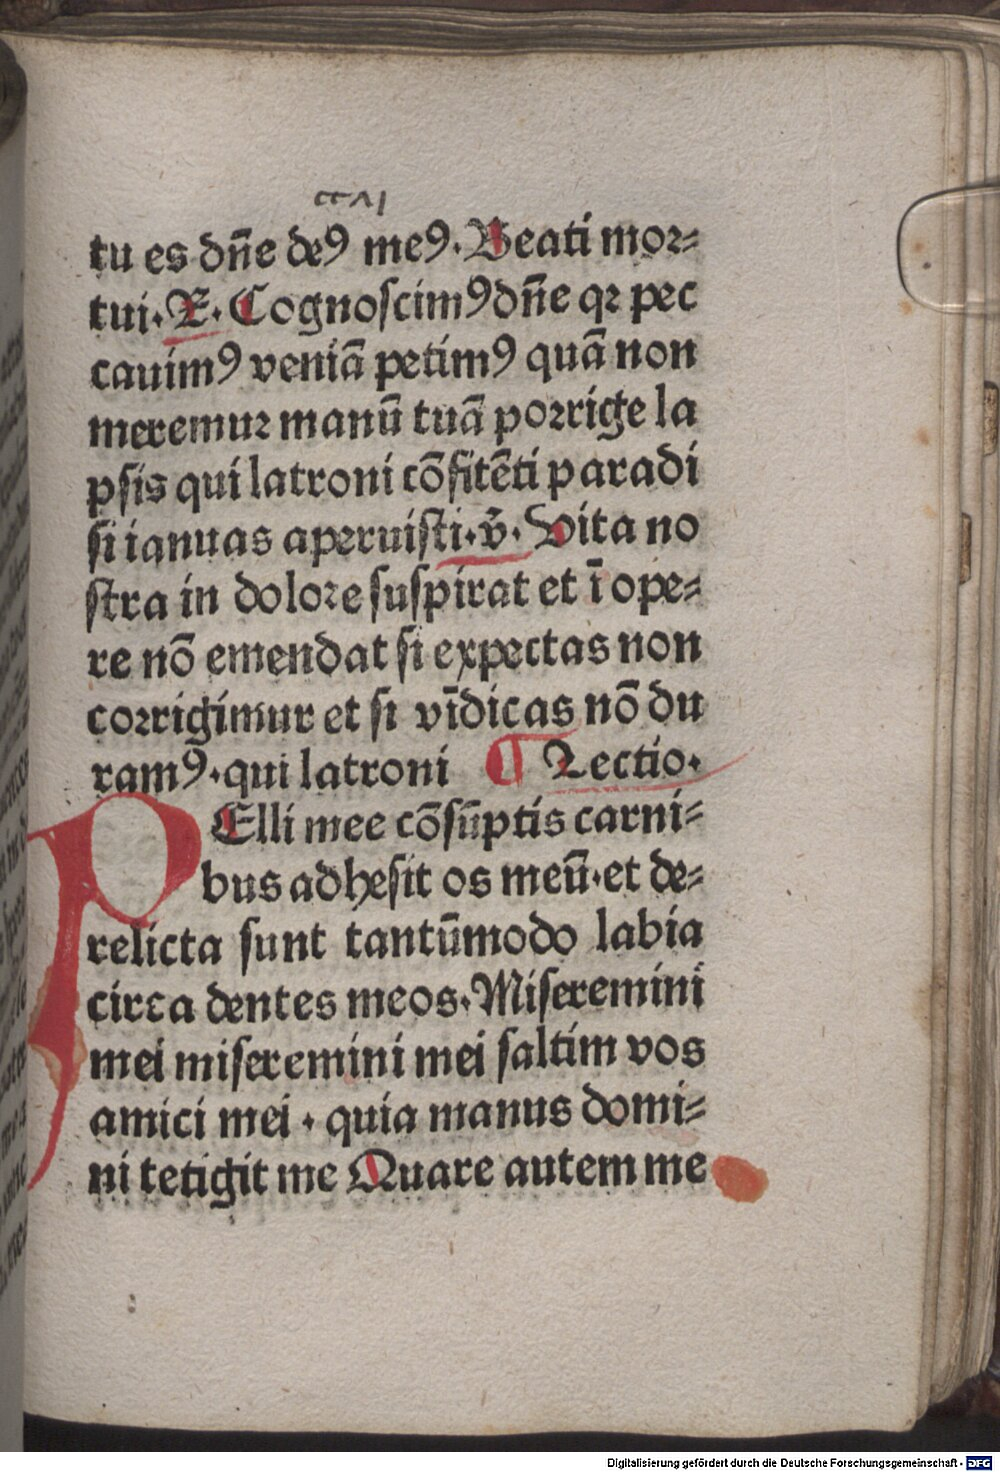 ccxvj
tu es dn̄e deꝰ meꝰ. Beati mor⸗
tui. R. Cognoscimꝰ dn̄e qꝛ pec
cauimꝰ veniā petimꝰ quā non
meremur manū tuā porrige la
psis qui latroni cōfitēti paradi
si ianuas aperuisti. v̄. Vita no
stra in dolore suspirat et ī ope⸗
re nō emendat si expectas non
corrigimur et si vīdicas nō du
ramꝰ. qui latroni ¶ Lectio.
PElli mee cōsūptis carni⸗
bus adhesit os meū. et de⸗
relicta sunt tantūmodo labia
circa dentes meos. Miseremini
mei miseremini mei saltim vos
amici mei. quia manus domi⸗
ni tetigit me Quare autem me
Digitalisierung gefördert durch die Deutsche Forschungsgemeinschaft - DFG